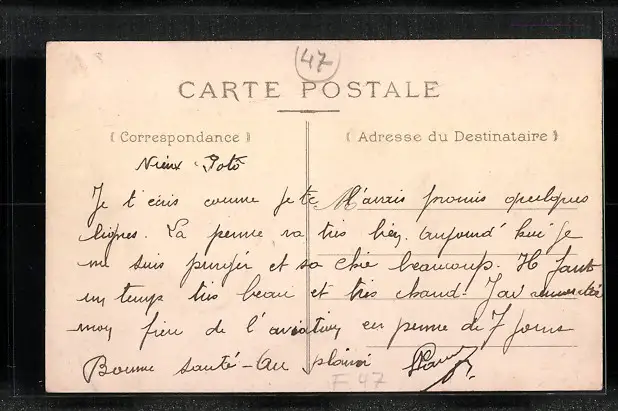 47
CARTE POSTALE
( Correspondance )
( Adresse du Destinataire )
Vieux Poto
Je t'écris comme je te l'avais promis quelques
lignes. La perme va très bien. aujourd'hui je
me suis purgé et sa chie beaucoup. Il fait
un temps très beau et très chaud. J'ai
mon de l'aviation en perme de 7 jours
Bonne santé - Au plaisir
F 47